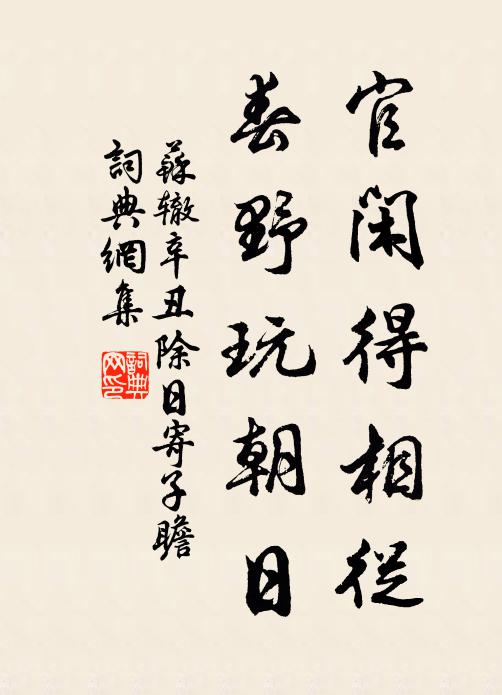 官閑得相從
春野玩朝日
蘇辙辛丑除日寄子瞻
詞典網集
詞典網印